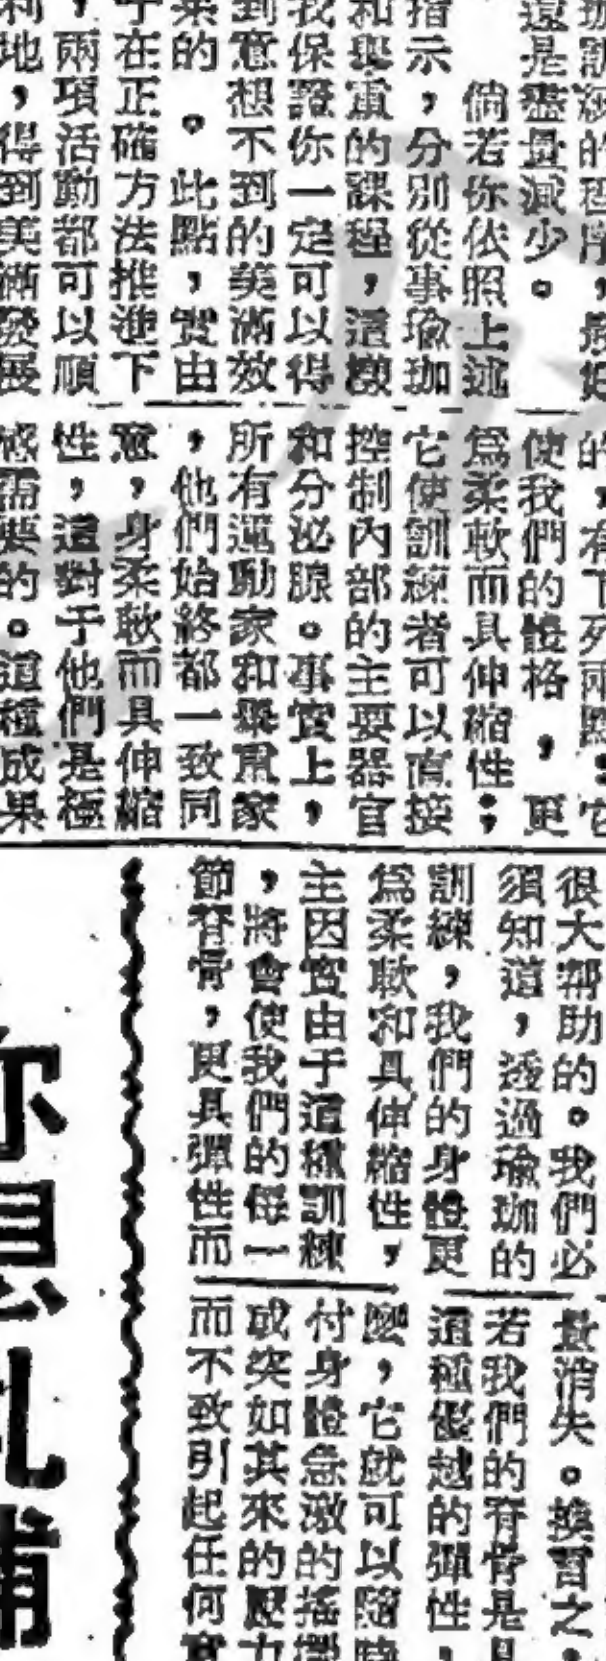 珈訓練的程序,最好
還是盡量減少。
倘若你依照上述
指示,分別從事瑜珈
和舉重的課程,這樣
我保證你一定可以得
到意想不到的美滿效
果的。此點,實由
于在正確方法推進下
,兩項活動都可以順
利地,得到美滿發展
的,有下列兩點:它
使我們的體格,更
爲柔軟而具伸縮性;
它使訓練者可以直接
控制內部的主要器官
和分泌腺。事實上,
所有運動家和舉重家
,他們始終都一致同
意,身柔軟而具伸縮
性,這對于他們是極
感需要的。這種成果
很大幫助的。我們必
須知道,透過瑜珈的
訓練,我們的身體更
爲柔軟和具伸縮性,
主因實由于這種訓練
,將會使我們的每一
節脊骨,更具彈性而
量消失。換言之,
若我們的脊骨是具
這種優越的彈性,
麼,它就可以隨時
付身體急激的搖擺
或突如其來的壓力
而不致引起任何